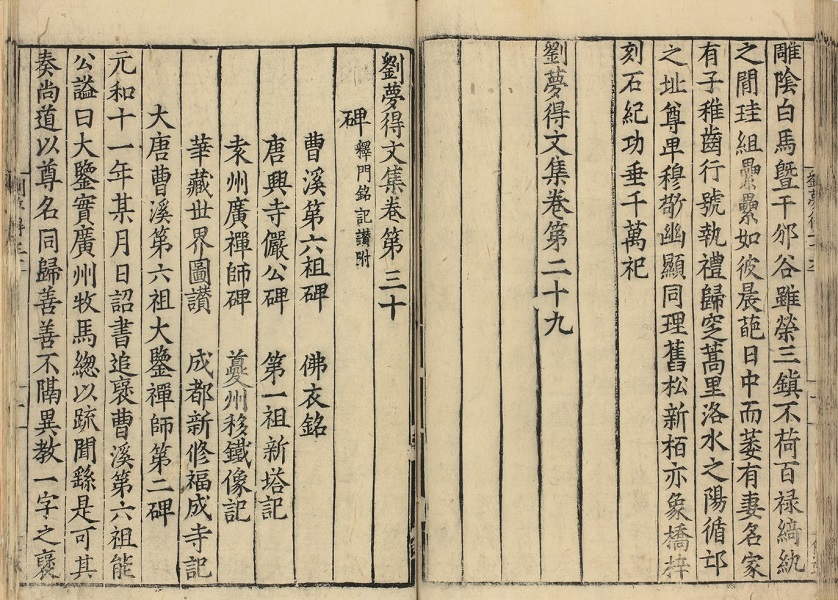 雕陰白馬暨干邠谷雖榮三鎮不荷百祿綺紈
之間珪組纍纍如彼晨葩日中而萎有妻名家
有子稚齒行號執禮歸窆蒿里洛水之陽循邙
之址尊卑穆敬幽顯同理舊松新栢亦象橋梓
刻石紀功垂千萬祀
劉夢得文集卷第二十九
劉夢得文集卷第三十
碑釋門銘記讚附
曹溪第六祖碑 佛衣銘
唐興寺儼公碑 第一祖新塔記
袁州廣禪師碑 夔州移鐵像記
華藏世界圖讚 成都新修福成寺記
大唐曹溪第六祖大鑒禪師第二碑
元和十一年某月日詔書追褒曹溪第六祖能
公謚曰大鑒實廣州牧馬緫以疏聞繇是可其
奏尚道以尊名同歸善善不隔異教一字之褒